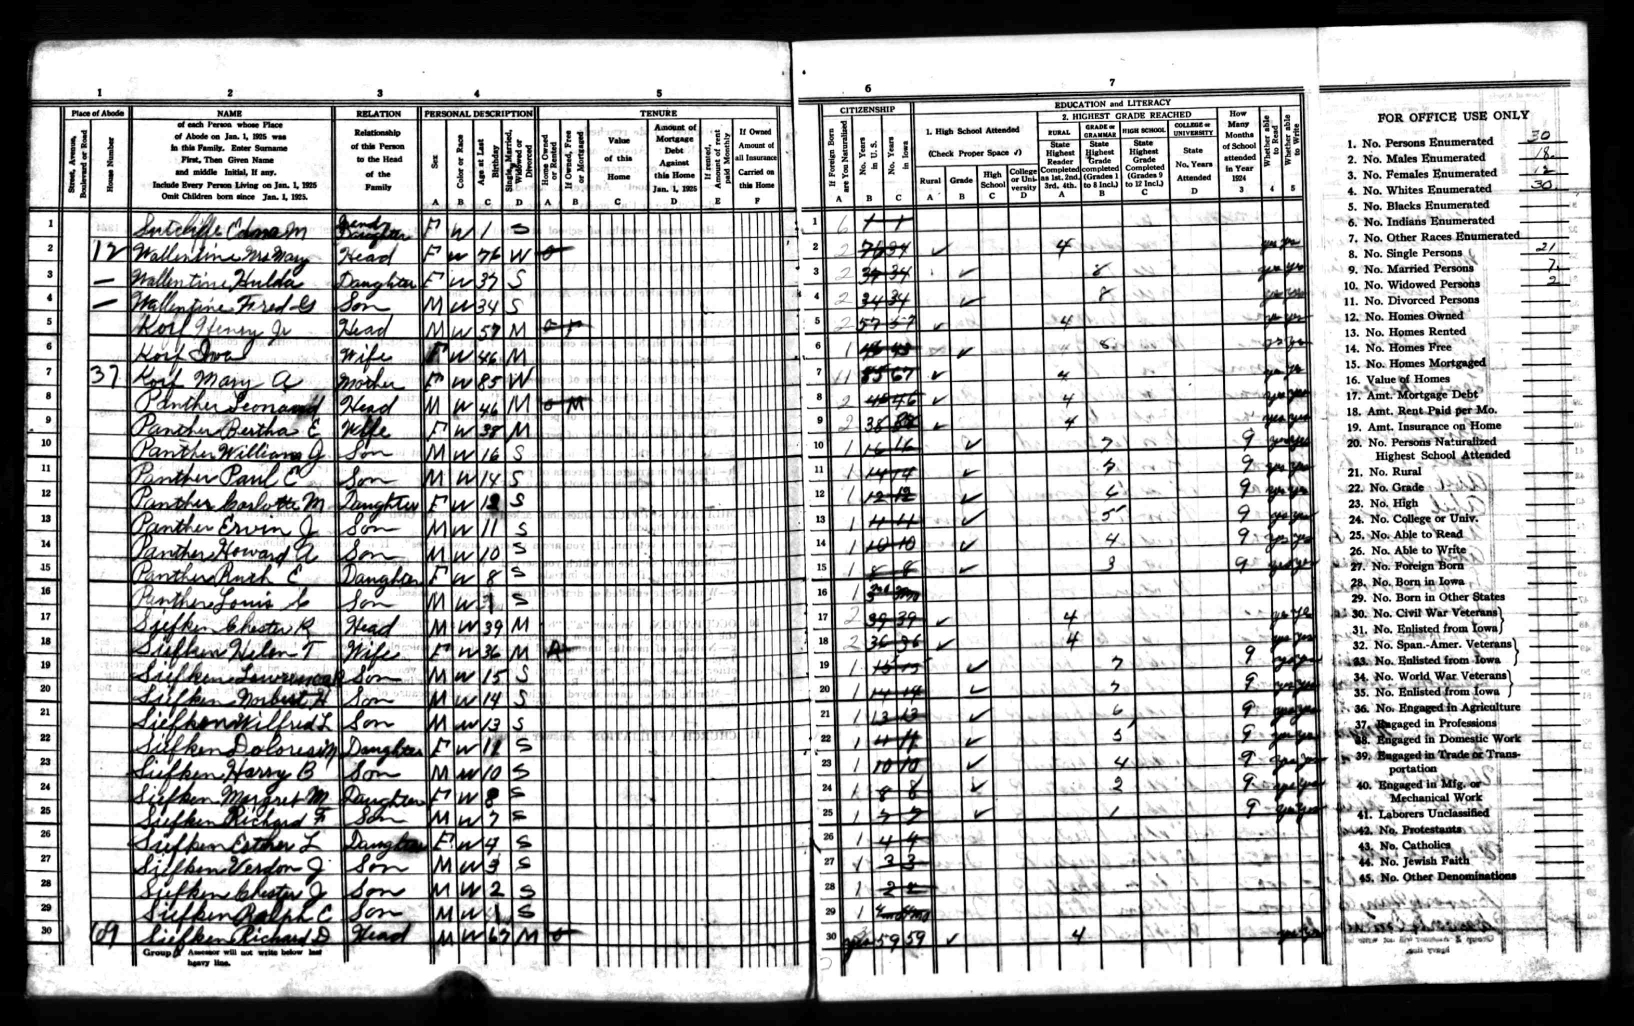 1 2 3 4 5 6 7
Place of Abode NAME RELATION PERSONAL DESCRIPTION TENURE CITIZENSHIP EDUCATION and LITERACY
Street, Avenue, Boulevard or Road
House Number
of each Person whose Place
of Abode on Jan. 1, 1925 was
in this Family. Enter Surname
First, Then Given Name
and middle Initial, if any.
Include Every Person Living on Jan. 1, 1925
Omit Children born since Jan. 1, 1925.
Relationship
of this Person
to the Head
of the
Family
Sex
Color or Race
Age at Last Birthday
Single, Married, Widowed or Divorced
A B C D
Home Owned or Rented
If Owned, Free or Mortgaged
Value of this Home
Amount of Mortgage Debt Against this Home Jan. 1, 1925
If rented, Amount of rent paid Monthly
If Owned Amount of all Insurance Carried on this Home
A B C D E F
If Foreign Born are You Naturalized
No. Years in U.S.
No. Years in Iowa
A B C
1. High School Attended
(Check Proper Space ✓)
Rural Grade High School College or University
A B C D
2. HIGHEST GRADE REACHED
RURAL
State Highest Reader Completed as 1st. 2nd. 3rd. 4th.
GRADE or GRAMMAR
State Highest Grade completed (Grades 1 to 8 Incl.)
HIGH SCHOOL
State Highest Grade Completed (Grades 9 to 12 Incl.)
COLLEGE or UNIVERSITY
State No. Years Attended
A B C D
How Many Months of School attended in Year 1924
3
Whether able to Read
4
Whether able to Write
5
1 Sutcliffe Edna M Grand Daughter F W 1 S 1 6 1 1
2 12 Wallentine Mrs Mary Head F W 76 W o 2 2 76 34 ✓ 4 yes yes
3 — Wallentine Hulda Daughter F W 37 S 3 2 37 34 ✓ 8 yes yes
4 — Wallentine Fred G Son M W 34 S 4 2 34 34 ✓ 8 yes yes
5 Korf Henry Jr Head M W 57 M o F 5 2 57 57 ✓ 4 yes yes
6 Korf Iva Wife F W 46 M 6 1 ✓ 8 yes yes
7 37 Korf Mary A Mother F W 85 W 7 11 85 67 ✓ 4 yes yes
8 Panther Leonard Head M W 46 M o M 8 2 46 46 ✓ 4 yes yes
9 Panther Bertha E Wife F W 38 M 9 2 38 38 ✓ 4 yes yes
10 Panther William J Son M W 16 S 10 1 16 16 ✓ 7 9 yes yes
11 Panther Paul E Son M W 14 S 11 1 14 14 ✓ 7 9 yes yes
12 Panther Carlotta M Daughter F W 12 S 12 1 12 12 ✓ 6 9 yes yes
13 Panther Ervin J Son M W 11 S 13 1 11 11 ✓ 5 9 yes yes
14 Panther Howard A Son M W 10 S 14 1 10 10 ✓ 4 9 yes yes
15 Panther Ruth E Daughter F W 8 S 15 1 8 8 ✓ 3 9 yes yes
16 Panther Louis Son M W S 16 1
17 Siefken Chester R Head M W 39 M 17 2 39 39 ✓ 4 yes yes
18 Siefken Helen T Wife F W 36 M R 18 2 36 36 ✓ 4 yes yes
19 Siefken Lawrence R Son M W 15 S 19 1 15 15 ✓ 7 9 yes yes
20 Siefken Norbert H Son M W 14 S 20 1 14 14 ✓ 7 9 yes yes
21 Siefken Wilfred L Son M W 13 S 21 1 13 13 ✓ 6 9 yes yes
22 Siefken Dolores M Daughter F W 11 S 22 1 11 11 ✓ 5 9 yes yes
23 Siefken Harry B Son M W 10 S 23 1 10 10 ✓ 4 9 yes yes
24 Siefken Margret M Daughter F W 8 S 24 1 8 8 ✓ 2 9 yes yes
25 Siefken Richard F Son M W 7 S 25 1 7 7 ✓ 1 9 yes yes
26 Siefken Esther L Daughter F W 4 S 26 1 4 4
27 Siefken Verdon J Son M W 3 S 27 1 3 3
28 Siefken Chester J Son M W 2 S 28 1 2 2
29 Siefken Ralph C Son M W 1 S 29 1
30 69 Siefken Richard D Head M W 67 M o 30 yes 59 59 ✓ 4 yes yes
Group 1 Assessor will not write below last
heavy line.
FOR OFFICE USE ONLY
1. No. Persons Enumerated 30
2. No. Males Enumerated 18
3. No. Females Enumerated 12
4. No. Whites Enumerated 30
5. No. Blacks Enumerated
6. No. Indians Enumerated
7. No. Other Races Enumerated
8. No. Single Persons 21
9. No. Married Persons 7
10. No. Widowed Persons 2
11. No. Divorced Persons
12. No. Homes Owned
13. No. Homes Rented
14. No. Homes Free
15. No. Homes Mortgaged
16. Value of Homes
17. Amt. Mortgage Debt
18. Amt. Rent Paid per Mo.
19. Amt. Insurance on Home
20. No. Persons Naturalized
Highest School Attended
21. No. Rural
22. No. Grade
23. No. High
24. No. College or Univ.
25. No. Able to Read
26. No. Able to Write
27. No. Foreign Born
28. No. Born in Iowa
29. No. Born in Other States
30. No. Civil War Veterans
31. No. Enlisted from Iowa
32. No. Span.-Amer. Veterans
33. No. Enlisted from Iowa
34. No. World War Veterans
35. No. Enlisted from Iowa
36. No. Engaged in Agriculture
37. Engaged in Professions
38. Engaged in Domestic Work
39. Engaged in Trade or Trans-
portation
40. Engaged in Mfg. or
Mechanical Work
41. Laborers Unclassified
42. No. Protestants
43. No. Catholics
44. No. Jewish Faith
45. No. Other Denominations